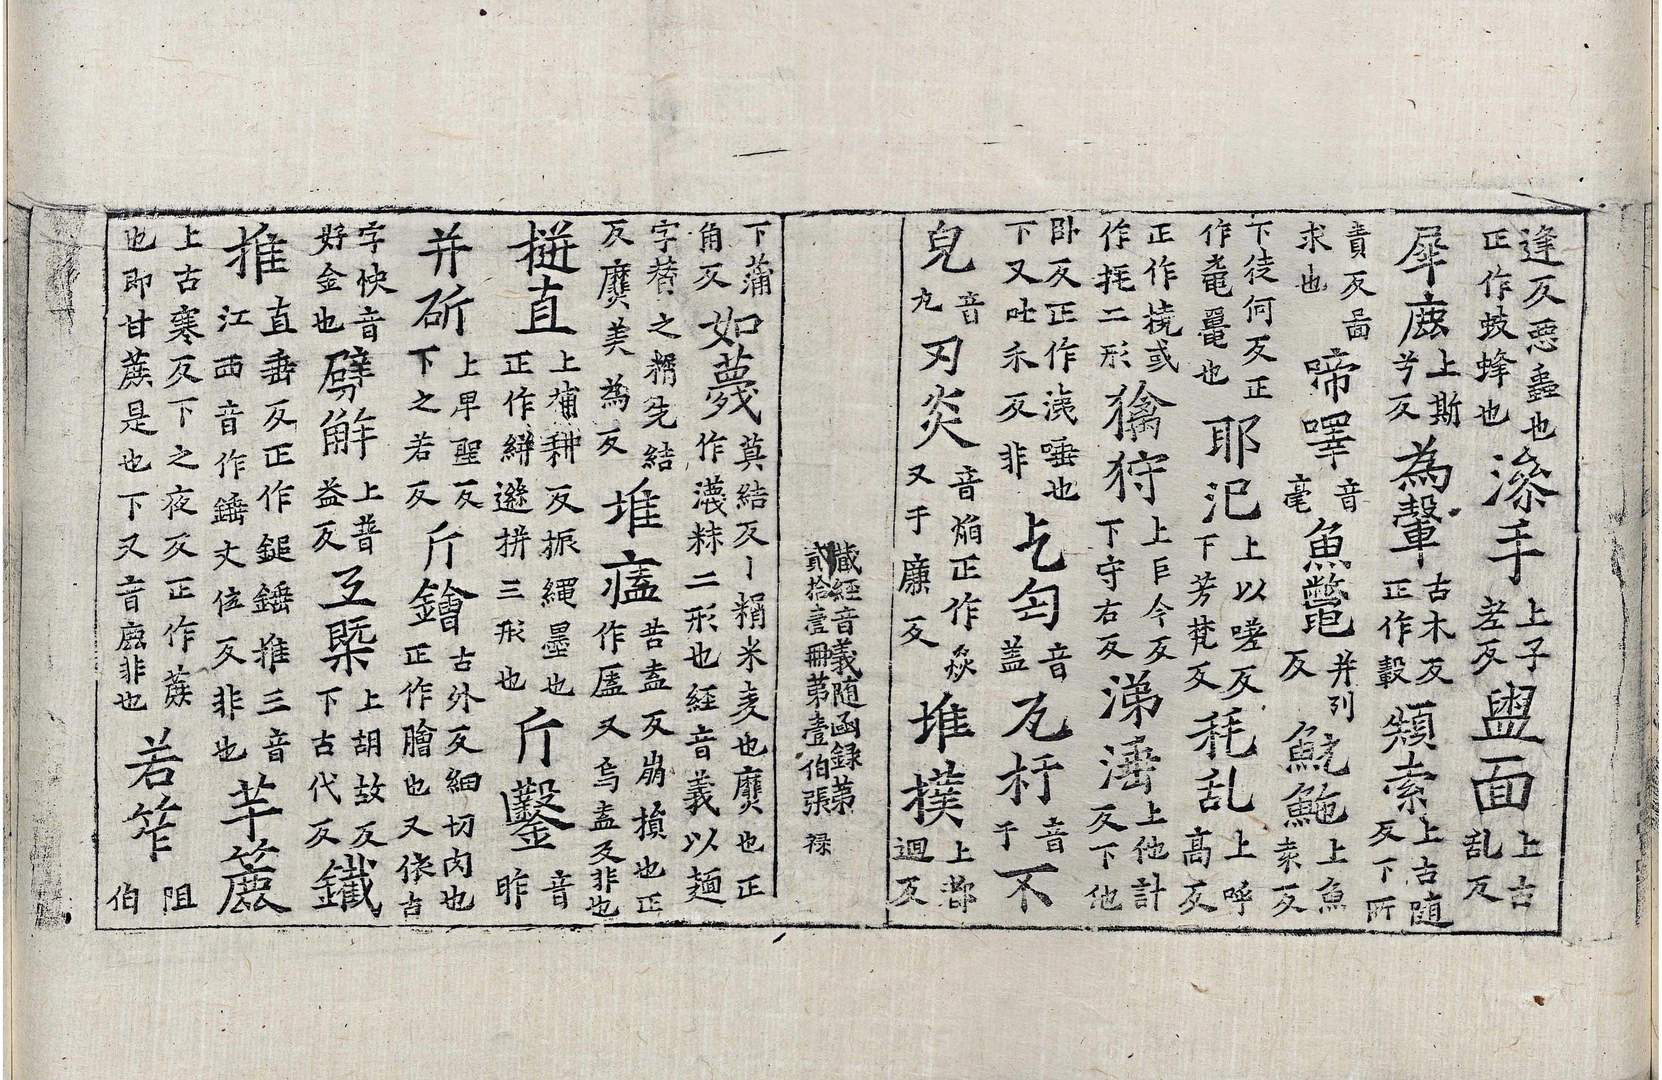 逢反悪蠱也
正作蚑蜂也
漆手
上子
差反
盥面
上古
乱反
犀麁
上斯
兮反
為輂
古木反
正作轂
纇索
上古随
反下所
責反畐
求也
啼嘷
音
毫
魚鼈
并列
反
魭鮑
上魚
袁反
下徒何反正
作鼋鼉也
耶汜
上以嗟反
下芳梵反
秏乱
上呼
高反
正作撓或
作㧌二形
擒狩
上巨今反
下守右反
涕涶
上他計
反下他
卧反正作涶唾也
下又吐禾反非
上匃
音
盖
瓦杅
音
于
不
皃
音
㒵
刃炎
音焰正作焱
又于廉反
堆撲
上都
迴反
藏經音義随函録第
貳拾壹冊第壹伯張
禄
下蒲
角反
如夢
莫結反丨糏米麦也㸏也正
作䉲䊳二形也経音義以麺
字替之糏先結
反㸏美為反
堆㾑
苦盍反崩損也正
作㕎又烏盍反非也
搓直
上補耕反振繩墨也
正作絣迸拼三形也
斤鑿
音
昨
并斫
上早聖反
下之若反
斤鱠
古外反細切肉也
正作膾也又依古
字怏音
好金也
劈解
上普
益反
互槩
上胡故反
下古代反
鐵
推
直垂反正作鎚錘推三音
江西音作錘丈位反非也
芉䕸
上古寒反下之夜反正作蔗
也即甘蔗是也下又音麁非也
若笮
阻
伯